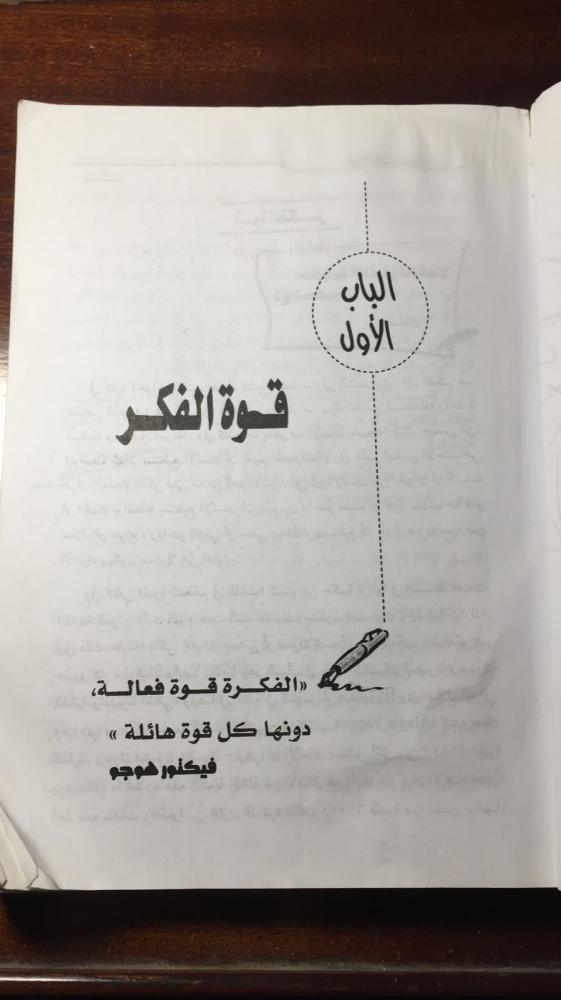 الباب
الأول
قوة الفكر
«الفكرة قوة فعالة،
دونها كل قوة هائلة »
فيكتور هوجو